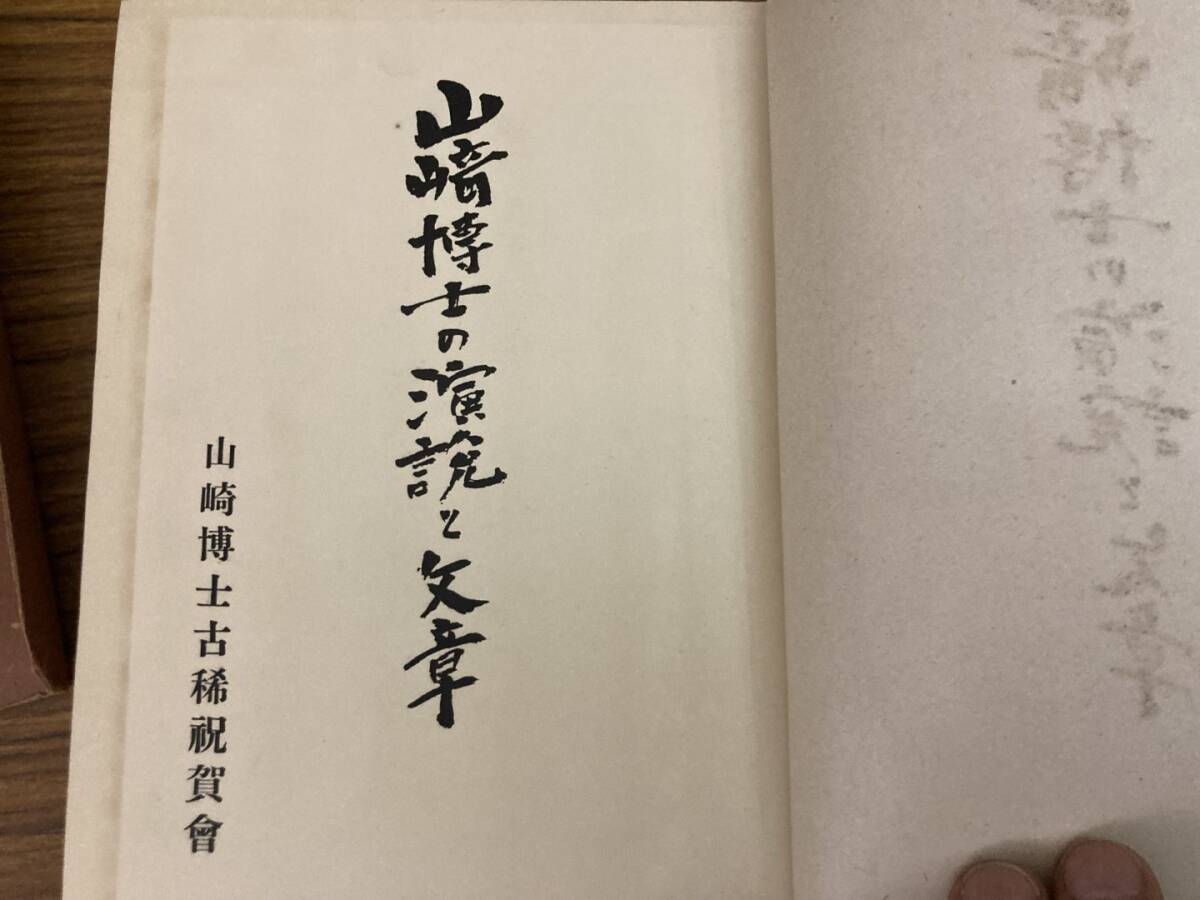 山崎博士の演説と文章
山崎博士古稀祝賀會